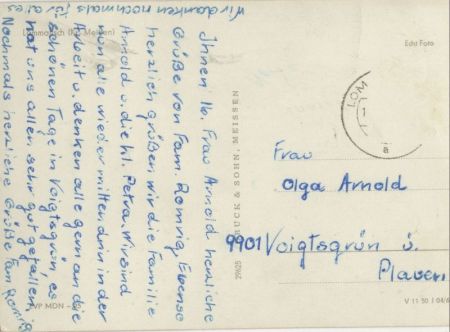 Ihnen lb. Frau Arnold herzliche
Grüße von Fam. Romnig, Ebenso
herzlich grüßen wir die Familie
Arnold u. die kl. Petra. Wir sind
nun alle wieder mitten drin in der
Arbeit u. denken alle gern an die
schönen Tage in Voigtsgrün, es
hat uns allen sehr gut gefallen.
Nochmals herzliche Grüße Fam.
wir danken nochmals für alles
Echt Foto
LOM
a
Frau
Olga Arnold
9901 Voigtsgrün ü.
Plauen
& SOHN, MEISSEN
V 11 50